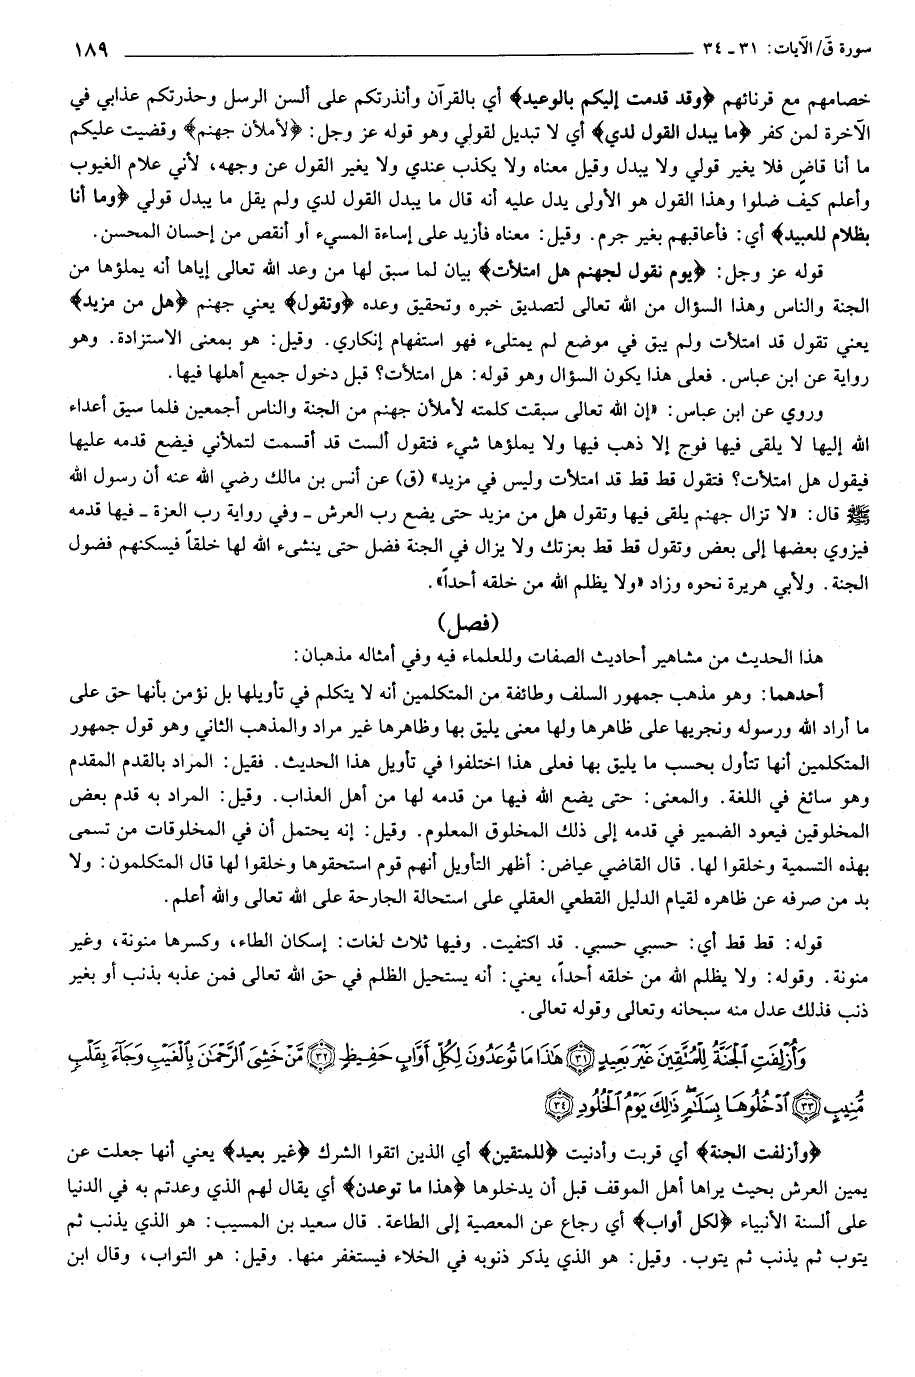 سورة ق/ الآيات: ٣١ ـ ٣٤ ١٨٩
خصامهم مع قرنائهم ﴿وقد قدمت إليكم بالوعيد﴾ أي بالقرآن وأنذرتكم على ألسن الرسل وحذرتكم عذابي في
الآخرة لمن كفر ﴿ما يبدل القول لدي﴾ أي لا تبديل لقولي وهو قوله عز وجل: ﴿لأملأن جهنم﴾ وقضيت عليكم
ما أنا قاضٍ فلا يغير قولي ولا يبدل وقيل معناه ولا يكذب عندي ولا يغير القول عن وجهه، لأني علام الغيوب
وأعلم كيف ضلوا وهذا القول هو الأولى يدل عليه أنه قال ما يبدل القول لدي ولم يقل ما يبدل قولي ﴿وما أنا
بظلام للعبيد﴾ أي: فأعاقبهم بغير جرم. وقيل: معناه فأزيد على إساءة المسيء أو أنقص من إحسان المحسن.
قوله عز وجل: ﴿يوم نقول لجهنم هل امتلأت﴾ بيان لما سبق لها من وعد الله تعالى إياها أنه يملؤها من
الجنة والناس وهذا السؤال من الله تعالى لتصديق خبره وتحقيق وعده ﴿وتقول﴾ يعني جهنم ﴿هل من مزيد﴾
يعني تقول قد امتلأت ولم يبق في موضع لم يمتلىء فهو استفهام إنكاري. وقيل: هو بمعنى الاستزادة. وهو
رواية عن ابن عباس. فعلى هذا يكون السؤال وهو قوله: هل امتلأت؟ قبل دخول جميع أهلها فيها.
وروي عن ابن عباس: «إن الله تعالى سبقت كلمته لأملأن جهنم من الجنة والناس أجمعين فلما سيق أعداء
الله إليها لا يلقى فيها فوج إلا ذهب فيها ولا يملؤها شيء فتقول ألست قد أقسمت لتملأني فيضع قدمه عليها
فيقول هل امتلأت؟ فتقول قط قط قد امتلأت وليس في مزيد» (ق) عن أنس بن مالك رضي الله عنه أن رسول الله
ﷺ قال: «لا تزال جهنم يلقى فيها وتقول هل من مزيد حتى يضع رب العرش ـ وفي رواية رب العزة ـ فيها قدمه
فيزوي بعضها إلى بعض وتقول قط قط بعزتك ولا يزال في الجنة فضل حتى ينشىء الله لها خلقاً فيسكنهم فضول
الجنة. ولأبي هريرة نحوه وزاد «ولا يظلم الله من خلقه أحداً».
(فصل)
هذا الحديث من مشاهير أحاديث الصفات وللعلماء فيه وفي أمثاله مذهبان:
أحدهما: وهو مذهب جمهور السلف وطائفة من المتكلمين أنه لا يتكلم في تأويلها بل نؤمن بأنها حق على
ما أراد الله ورسوله ونجريها على ظاهرها ولها معنى يليق بها وظاهرها غير مراد والمذهب الثاني وهو قول جمهور
المتكلمين أنها تتأول بحسب ما يليق بها فعلى هذا اختلفوا في تأويل هذا الحديث. فقيل: المراد بالقدم المقدم
وهو سائغ في اللغة. والمعنى: حتى يضع الله فيها من قدمه لها من أهل العذاب. وقيل: المراد به قدم بعض
المخلوقين فيعود الضمير في قدمه إلى ذلك المخلوق المعلوم. وقيل: إنه يحتمل أن في المخلوقات من تسمى
بهذه التسمية وخلقوا لها. قال القاضي عياض: أظهر التأويل أنهم قوم استحقوها وخلقوا لها قال المتكلمون: ولا
بد من صرفه عن ظاهره لقيام الدليل القطعي العقلي على استحالة الجارحة على الله تعالى والله أعلم.
قوله: قط قط أي: حسبي حسبي. قد اكتفيت. وفيها ثلاث لغات: إسكان الطاء، وكسرها منونة، وغير
منونة. وقوله: ولا يظلم الله من خلقه أحداً، يعني: أنه يستحيل الظلم في حق الله تعالى فمن عذبه بذنب أو بغير
ذنب فذلك عدل منه سبحانه وتعالى وقوله تعالى.
وَأُزْلِفَتِ الْجَنَّةُ لِلْمُتَّقِينَ غَيْرَ بَعِيدٍ ﴿٣١﴾ هَٰذَا مَا تُوعَدُونَ لِكُلِّ أَوَّابٍ حَفِيظٍ ﴿٣٢﴾ مَّنْ خَشِيَ الرَّحْمَٰنَ بِالْغَيْبِ وَجَآءَ بِقَلْبٍ
مُّنِيبٍ ﴿٣٣﴾ ادْخُلُوهَا بِسَلَٰمٍ ۖ ذَٰلِكَ يَوْمُ الْخُلُودِ ﴿٣٤﴾
﴿وأزلفت الجنة﴾ أي قربت وأدنيت ﴿للمتقين﴾ أي الذين اتقوا الشرك ﴿غير بعيد﴾ يعني أنها جعلت عن
يمين العرش بحيث يراها أهل الموقف قبل أن يدخلوها ﴿هذا ما توعدن﴾ أي يقال لهم الذي وعدتم به في الدنيا
على ألسنة الأنبياء ﴿لكل أواب﴾ أي رجاع عن المعصية إلى الطاعة. قال سعيد بن المسيب: هو الذي يذنب ثم
يتوب ثم يذنب ثم يتوب. وقيل: هو الذي يذكر ذنوبه في الخلاء فيستغفر منها. وقيل: هو التواب، وقال ابن